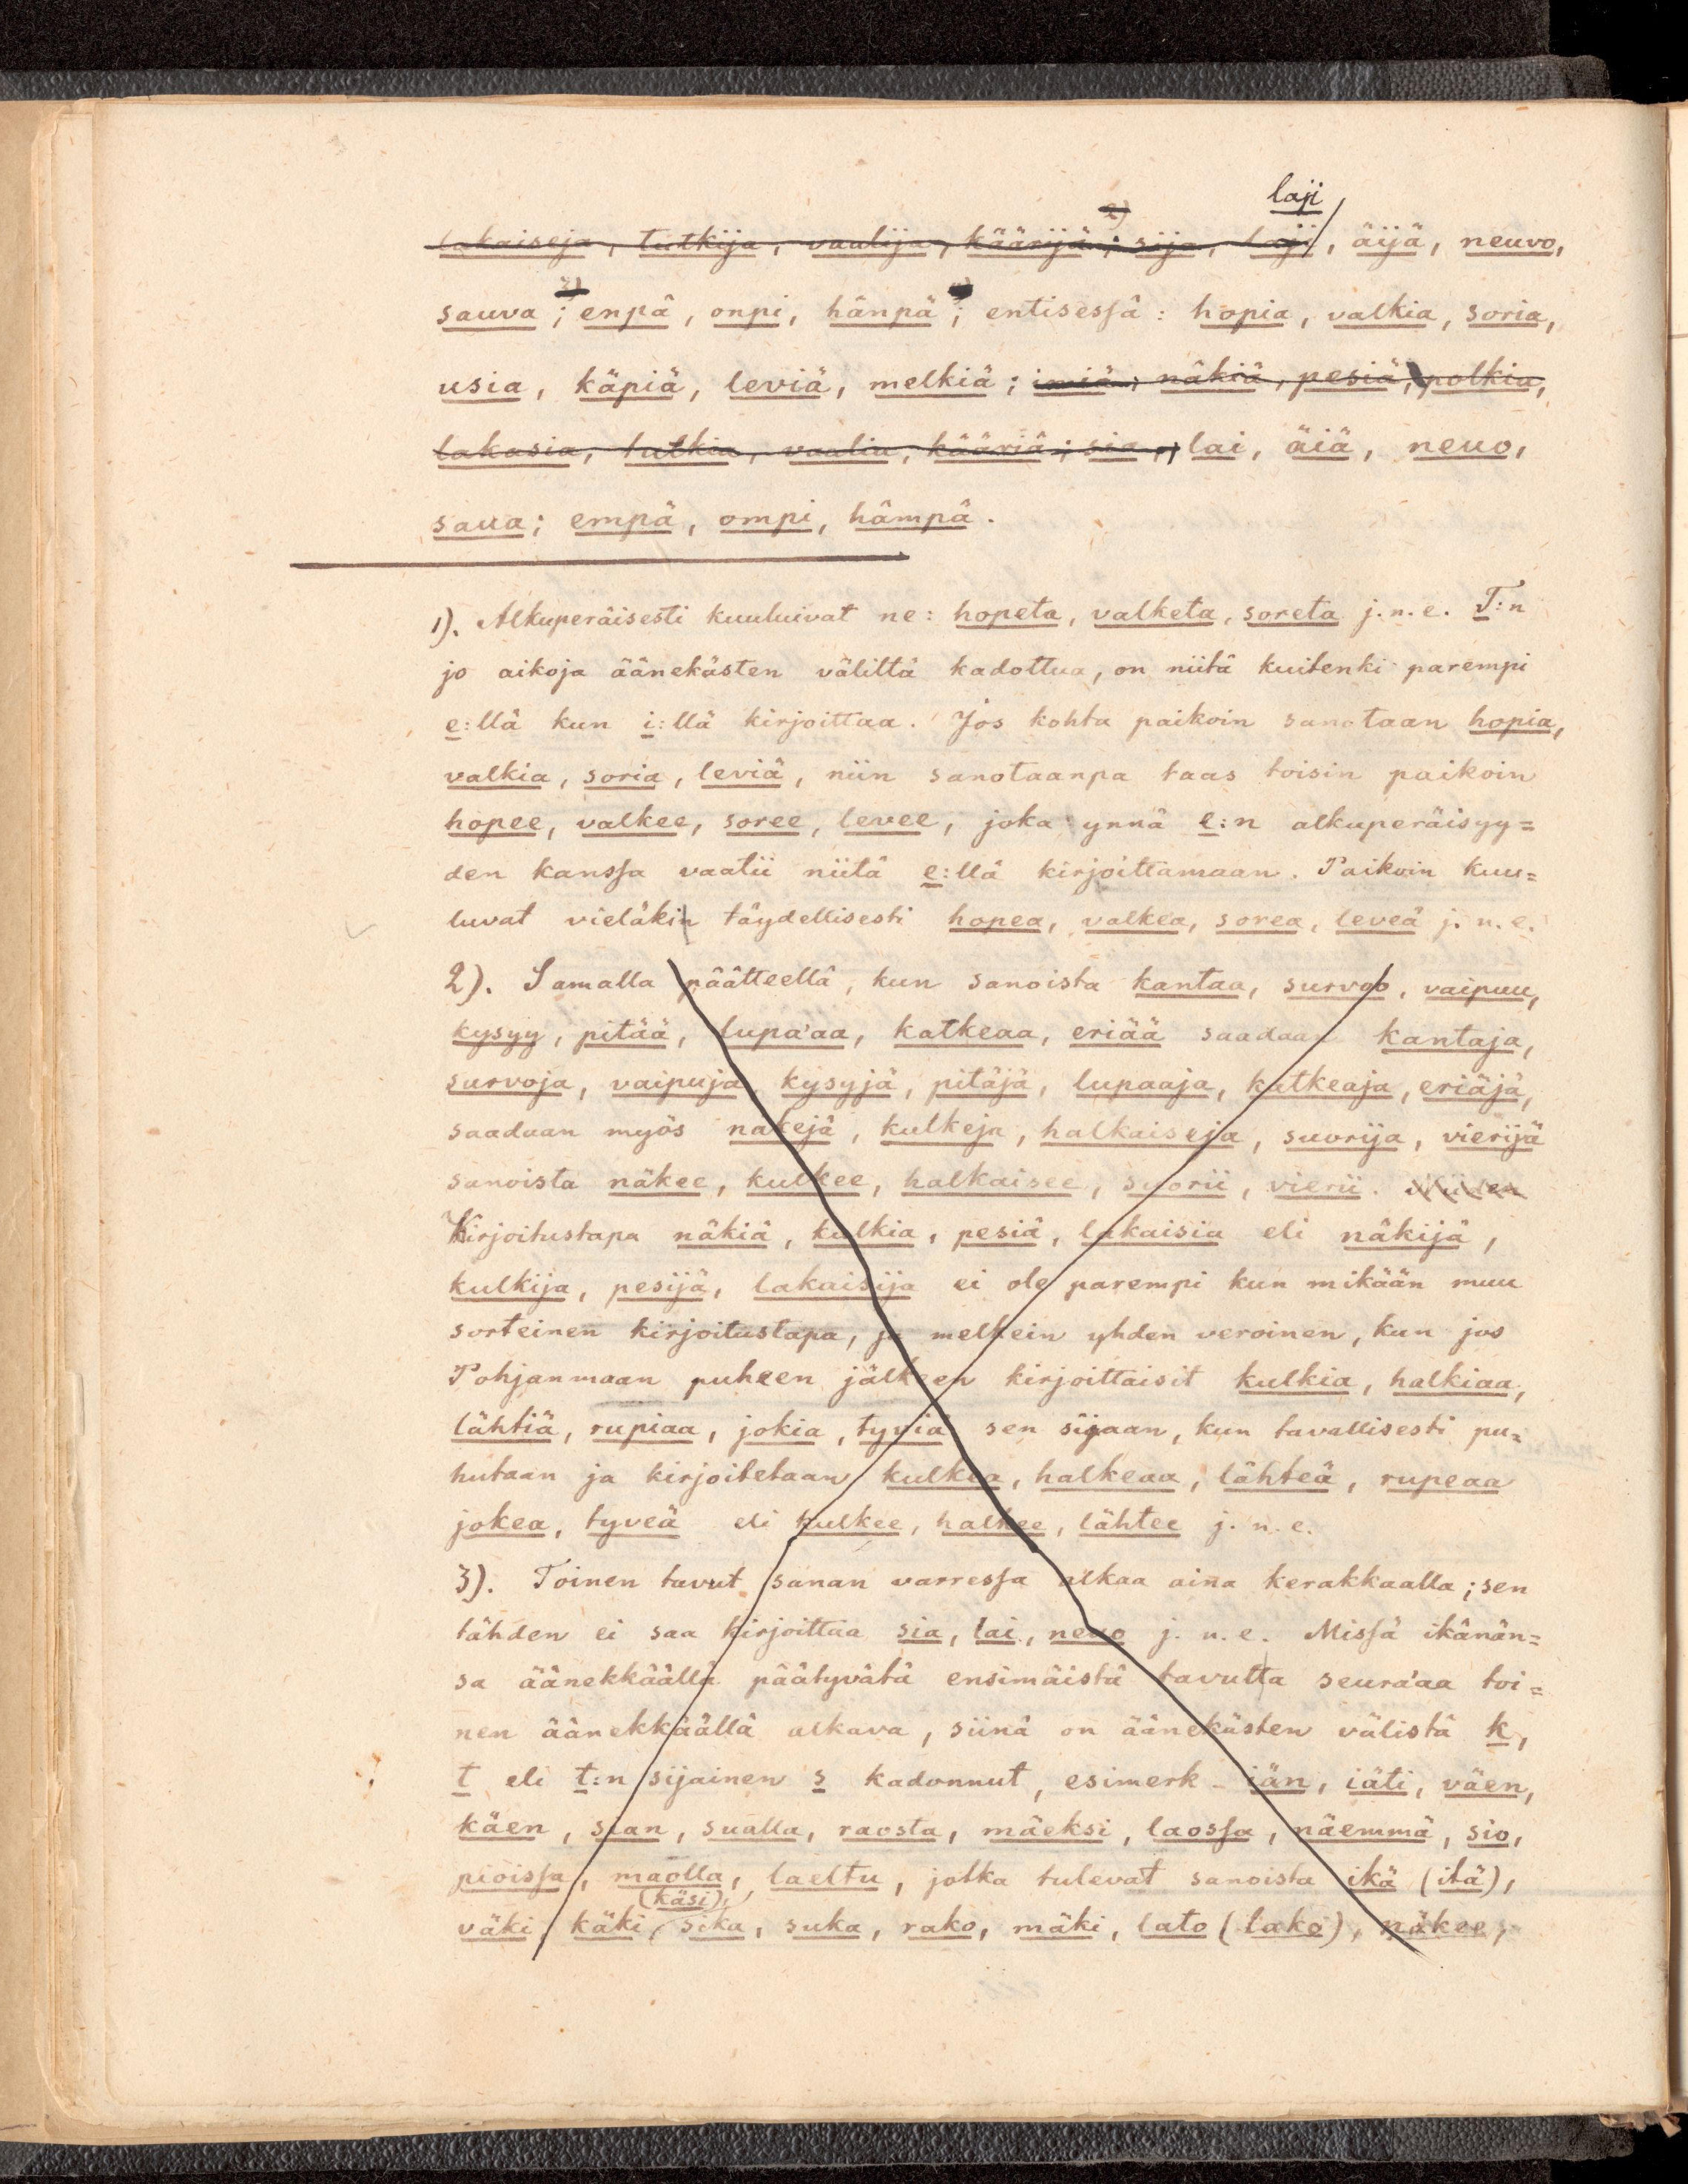 laji
lakaiseja, tutkija, vaalija, käärijä; sija, laji, äijä, neuvo,
sauva; enpä, onpi, hänpä; entisessä: hopia, valkia, soria,
usia, käpiä, leviä, melkiä; imiä, näkiä, pesiä, polkia,
lakasia, tutkia, vaalia, kääriä; sia, lai, äiä, neuo,
saua; empä, ompi, hämpä.
1). Alkuperäisesti kuuluivat ne: hopeta, valketa, soreta j.n.e. T:n
jo aikoja äänekästen väliltä kadottua, on niitä kuitenki parempi
e:llä kun i:llä kirjoittaa. Jos kohta paikoin sanotaan hopia,
valkia, soria, leviä, niin sanotaanpa taas toisin paikoin
hopee, valkee, soree, levee, joka ynnä e:n alkuperäisyy=
den kanssa vaatii niitä e:llä kirjoittamaan. Paikoin kuu=
luvat vieläkin täydellisesti hopea, valkea, sorea, leveä j.n.e.
2). Samalla päätteellä, kun sanoista kantaa, survoo, vaipuu,
kysyy, pitää, lupa'aa, katkeaa, eriää saadaan kantaja,
survoja, vaipuja, kysyjä, pitäjä, lupaaja, katkeaja, eriäjä,
saadaan myös näkejä, kulkeja, halkaiseja, suorija, vierijä
sanoista näkee, kulkee, halkaisee, suorii, vierii. Niiden
Kirjoitustapa näkiä, kulkia, pesiä, lakaisia eli näkijä,
kulkija, pesijä, lakaisija ei ole parempi kun mikään muu
sorteinen kirjoitustapa, ja melkein yhden veroinen, kun jos
Pohjanmaan puheen jälkeen kirjoittaisit kulkia, halkiaa,
lähtiä, rupiaa, jokia, tyviä sen sijaan, kun tavallisesti pu=
hutaan ja kirjoitetaan kulkea, halkeaa, lähteä, rupeaa
jokea, tyveä eli kulkee, halkee, lähtee j.n.e.
3). Toinen tavut sanan varressa alkaa aina kerakkaalla; sen
tähden ei saa kirjoittaa sia, lai, neuo j.n.e. Missä ikänän=
sä äänekkäällä päätyvätä ensimäistä tavutta seura'aa toi=
nen äänekkäällä alkava, siinä on äänekästen välistä k,
t eli t:n sijainen s kadonnut, esimerk. iän, iäti, väen,
käen, sian, sualla, raosta, mäeksi, laossa, näemmä, sio,
pioissa, maolla, laeltu, jotka tulevat sanoista ikä (itä),
väki, käki (käsi), sika, suka, rako, mäki, lato (lako), näkee,